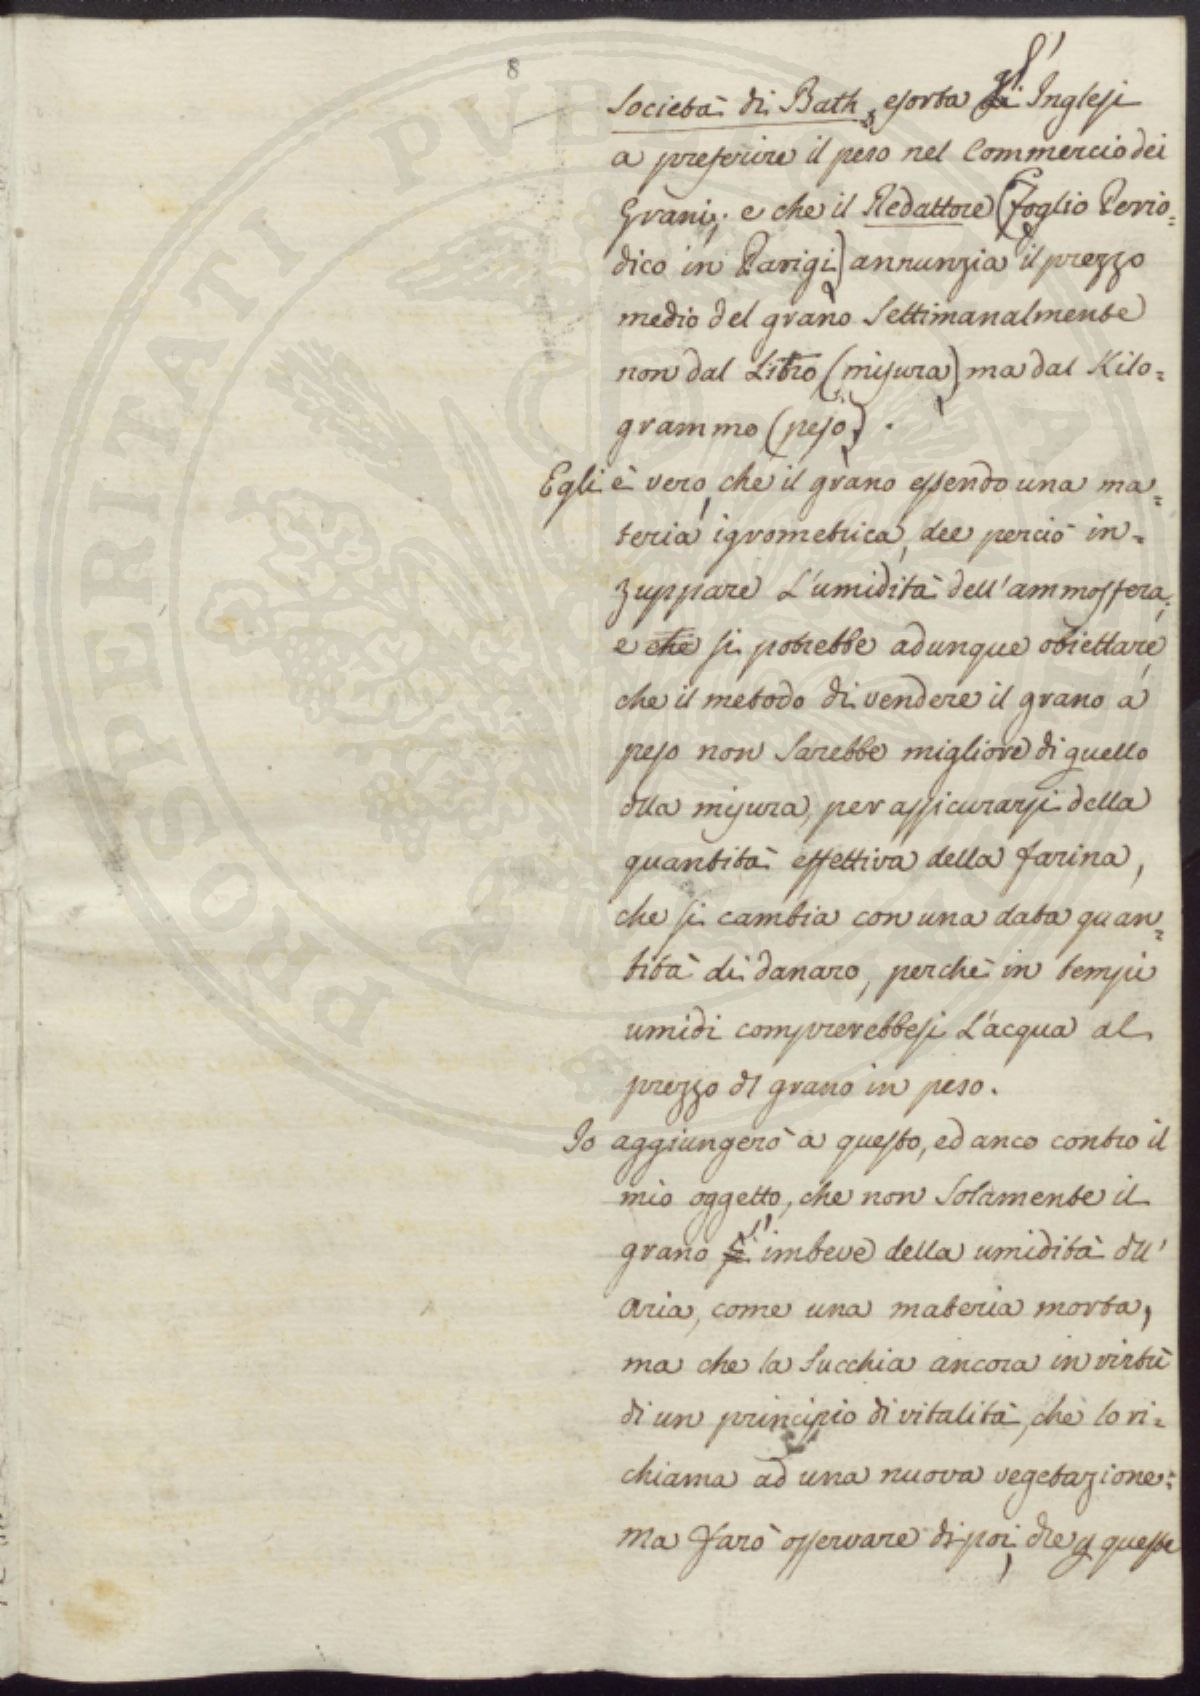 8
Società di Bath, esorta gl' Inglesi
a preferire il peso nel Commercio dei
Grani; e che il Redattore (Foglio Perio=
dico in Parigi) annunzia il prezzo
medio del grano Settimanalmente
non dal Litro (misura) ma dal Kilo=
grammo (peso).
Egli è vero, che il grano essendo una ma=
teria igrometrica, dee perciò in=
zuppare L'umidità dell'ammosfera,
e che si potrebbe adunque obiettare,
che il metodo di vendere il grano a
peso non Sarebbe migliore di quello
dlla misura, per assicurarsi della
quantità effettiva della farina,
che si cambia con una data quan=
tità di danaro, perchè in tempi
umidi comprerebbesi L'acqua al
prezzo di grano in peso.
Io aggiungerò a questo, ed anco contro il
mio oggetto, che non Solamente il
grano s' imbeve della umidità dll'
Aria, come una materia morta,
ma che la Succhia ancora in virtù
di un principio di vitalità, che lo ri=
chiama ad una nuova vegetazione:
Ma farò osservare di poi, che queste
PROSPERITATI PUBLICAE